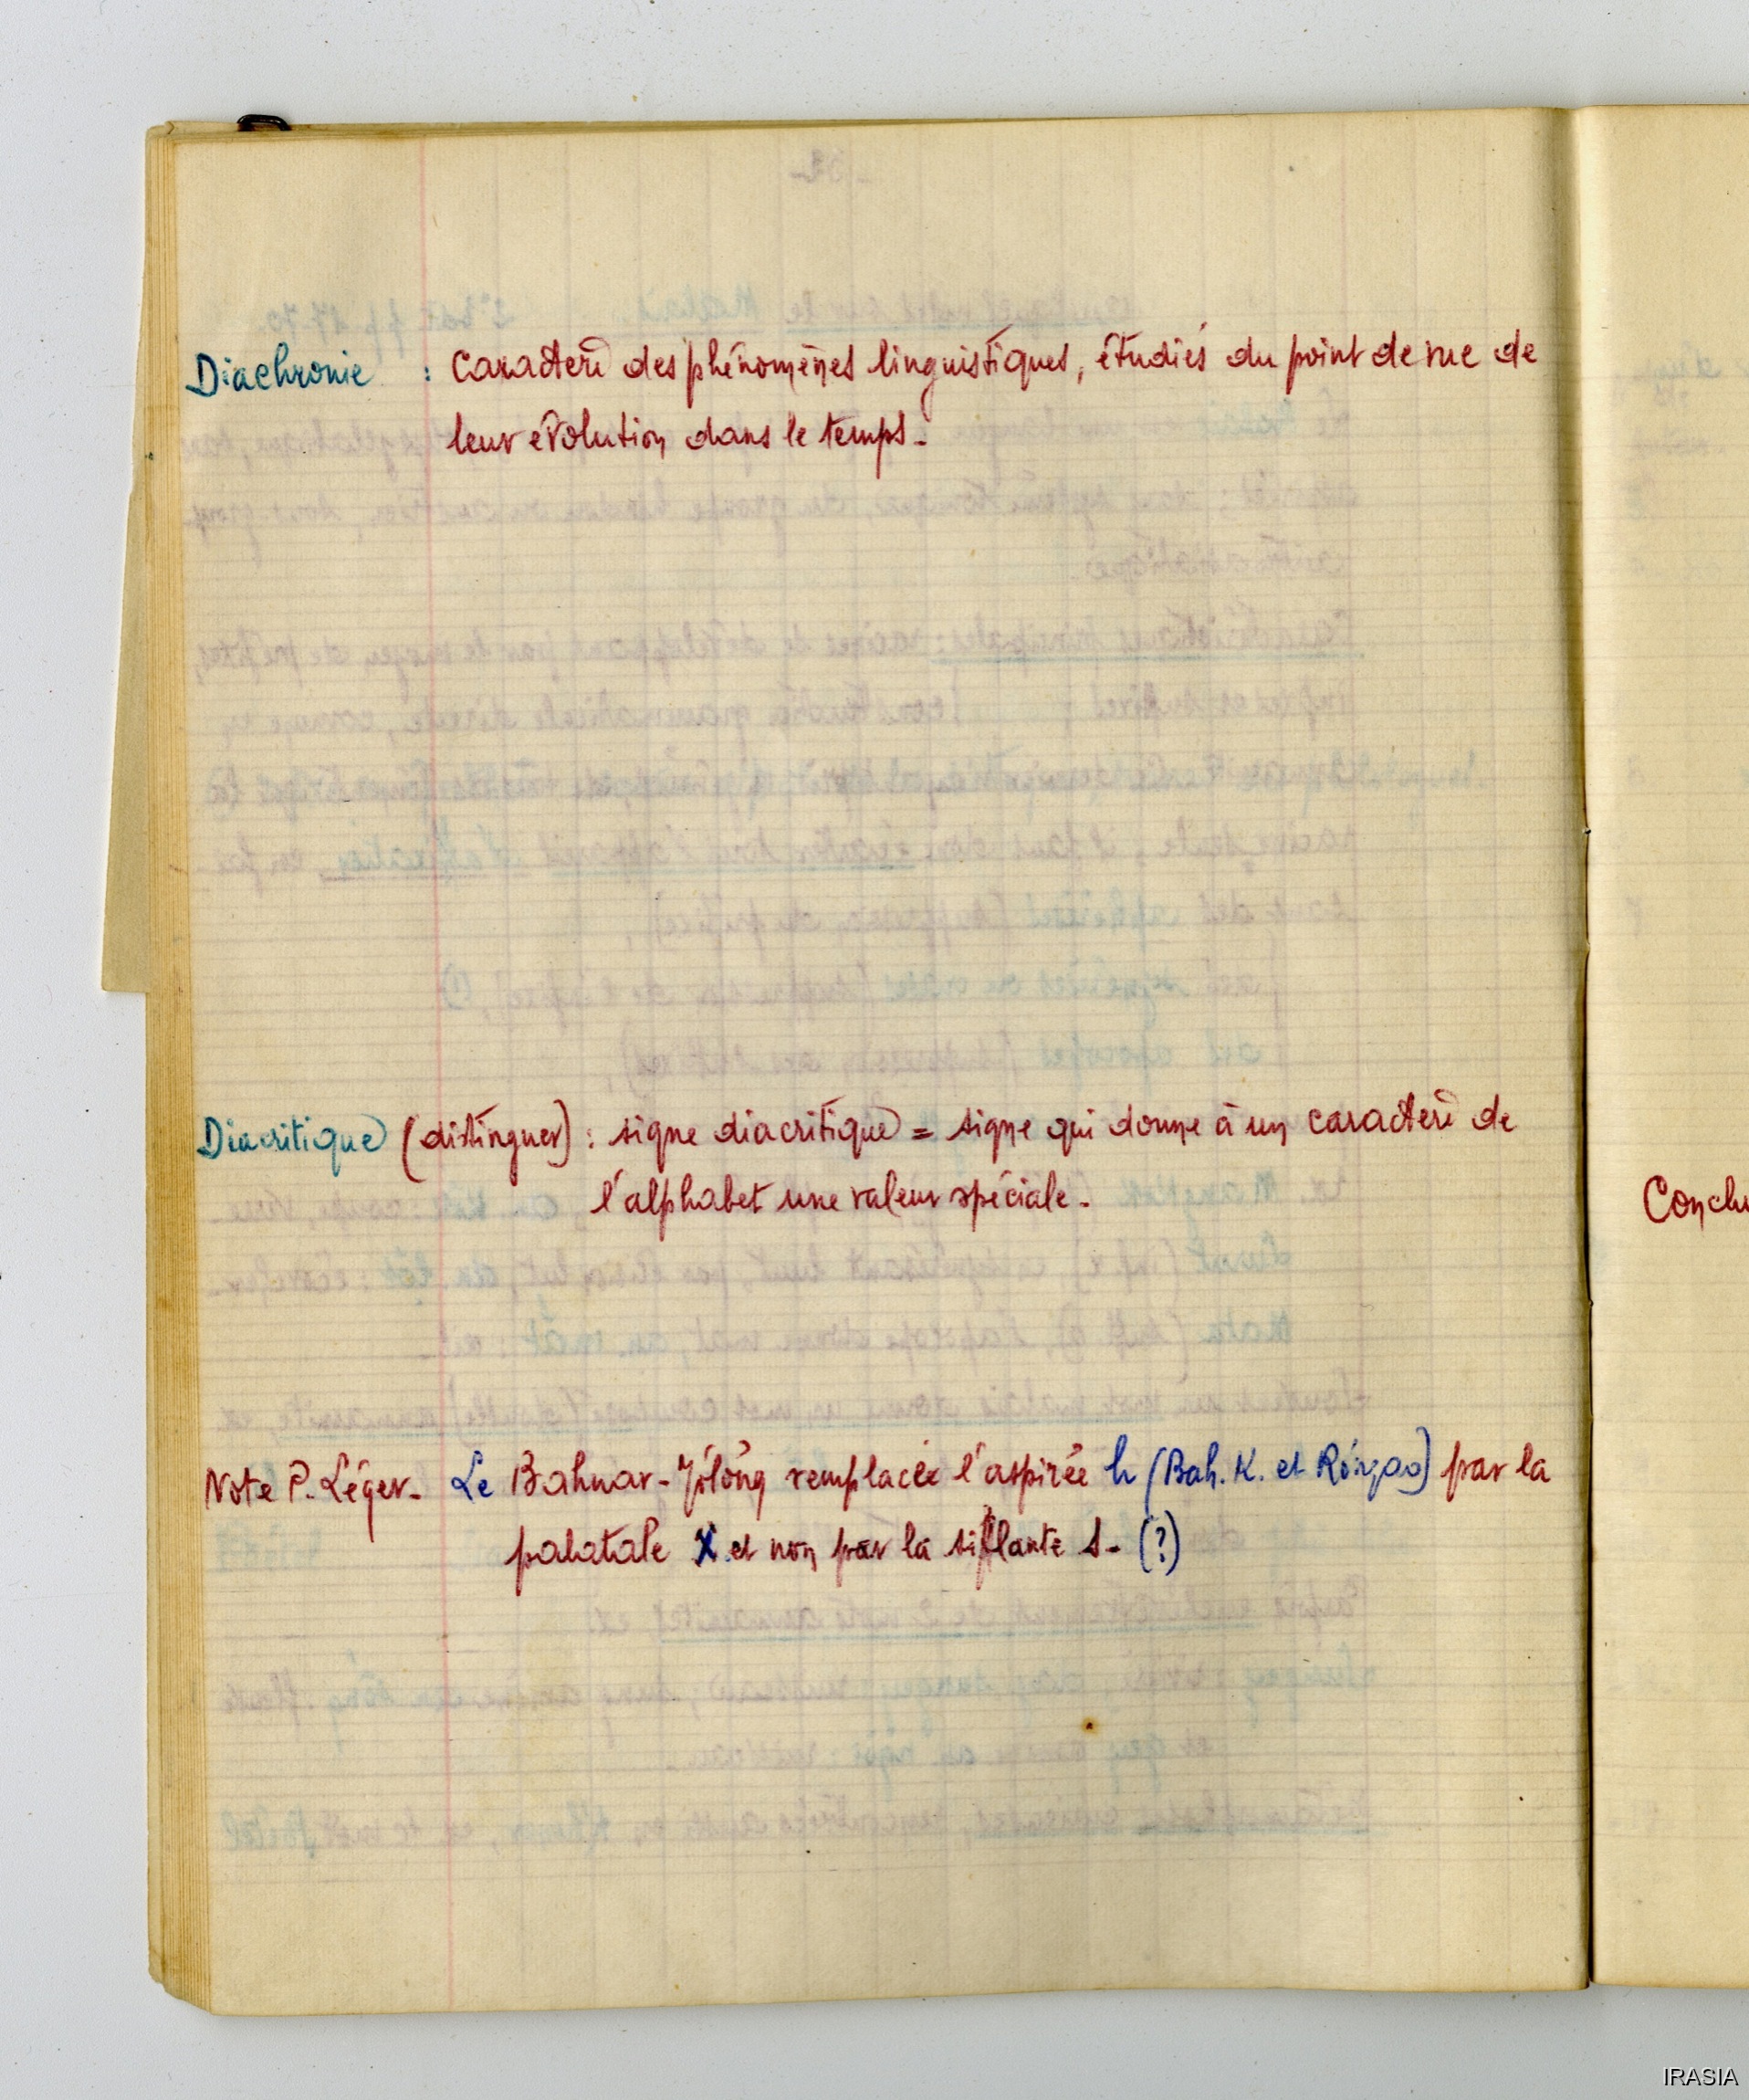 Diachronie : Caractère des phénomènes linguistiques, étudiés du point de vue de
leur évolution dans le temps.
Diacritique (distinguer) : signe diacritique = signe qui donne à un caractère de
l'alphabet une valeur spéciale.
Conclu
Note P. Léger. Le Bahnar-Jölöng l'aspirée h (Bah. K. et Röngao) par la
palatale x et non par la sifflante s. (?)
IRASIA